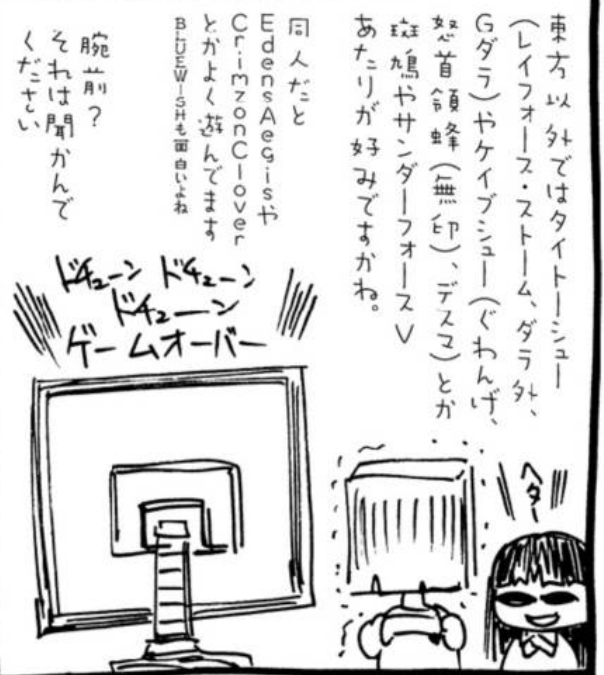 東方以外ではタイトーシュー
(レイフォース・ストーム、ダラ外、
Gダラ)やケイブシュー(ぐわんげ、
怒首領蜂(無印)、デスマ)とか
斑鳩やサンダーフォースV
あたりが好みですかね。
同人だと
EdensAegisや
CrimzonClover
とかよく遊んでます
BLUEWISHも面白いよね
腕前?
それは聞かんで
ください
ドチューン ドチューン
ドチューン
ゲームオーバー
ヘター